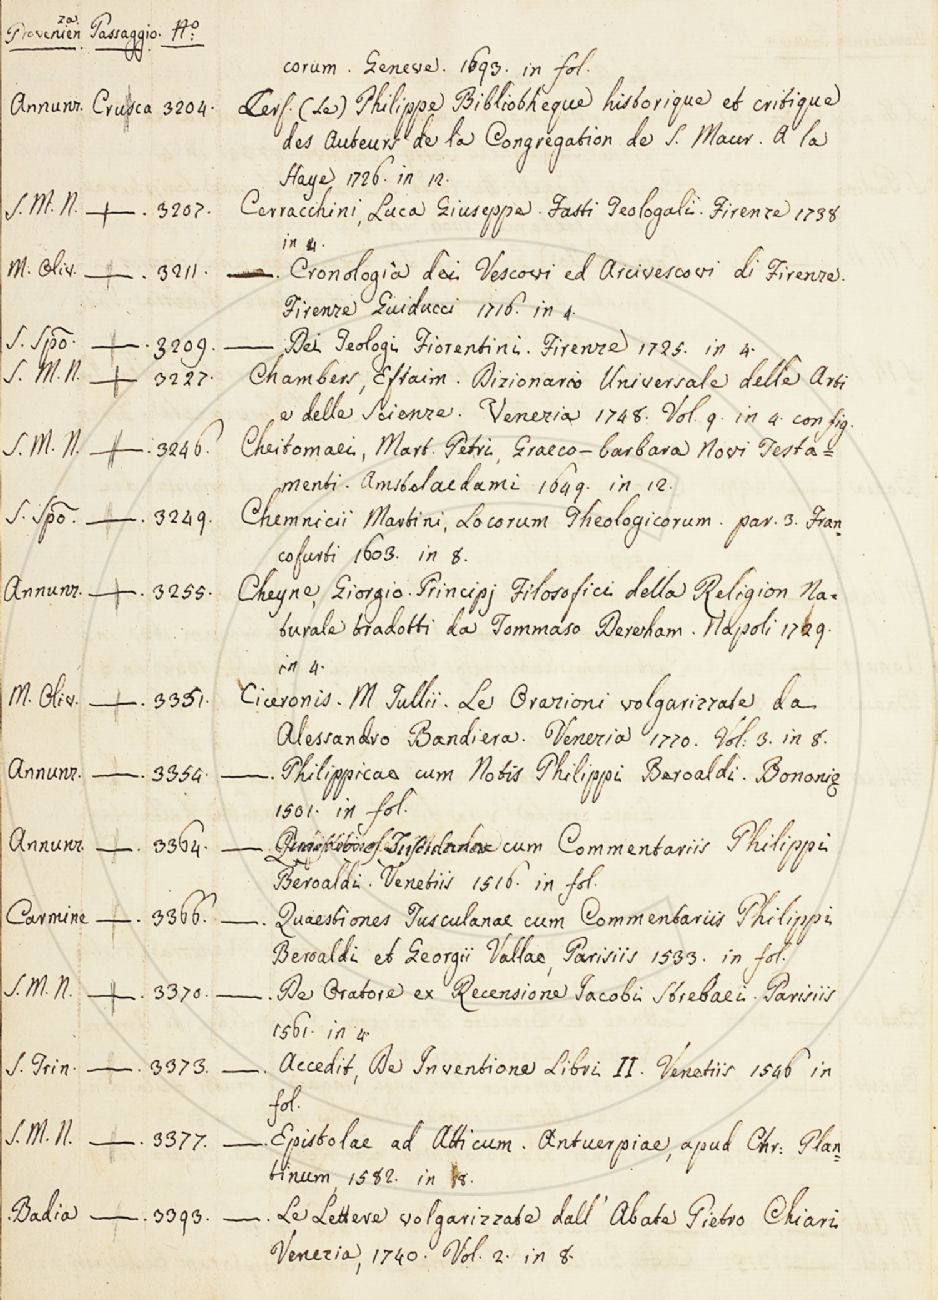 Provenienza. Passaggio. No:
corum. Geneve. 1693. in fol.
Annunz. Crusca 3204. Cerf. (Le) Philippe Bibliotheque historique et critique
des Auteurs de la Congregation de S. Maur. A la
Haye 1726. in 12.
S. M. N. — . 3207. Cerracchini, Luca Giuseppe. Fasti Teologali. Firenze 1738
in 4.
M. Oliv. — . 3211. — . Cronologia dei Vescovi ed Arcivescovi di Firenze.
Firenze Guiducci 1716. in 4.
S. Spo. — . 3209. — Dei Teologi Fiorentini. Firenze 1725. in 4.
S. M. N. — 3227. Chambers, Efraim. Dizionario Universale delle Arti
e delle Scienze. Venezia 1748. Vol. 9. in 4. con fig.
S. M. N. — . 3246. Cheitomaei, Mart. Petri, Graeco-barbara Novi Testa=
menti. Amstelaedami 1649. in 12.
S. Spo. — . 3249. Chemnicii Martini, Locorum Theologicorum. par. 3. Fran=
cofurti 1603. in 8.
Annunz. — . 3255. Cheyne, Giorgio. Principj Filosofici della Religion Na=
turale tradotti da Tommaso Dereham. Napoli 1729.
in 4.
M. Oliv. — . 3351. Ciceronis. M Tullii. Le Orazioni volgarizzate da
Alessandro Bandiera. Venezia 1770. Vol: 3. in 8.
Annunz. — . 3354. — . Philippicae cum Notis Philippi Beroaldi. Bononię
1501. in fol.
Annunz — . 3364. — cum Commentariis Philippi
Beroaldi. Venetiis 1516. in fol.
Carmine — . 3366. — . Quaestiones Tusculanae cum Commentariis Philippi
Beroaldi et Georgii Vallae, Parisiis 1533. in fol.
S. M. N. — . 3370. — . De Oratore ex Recensione Iacobi Strebaei. Parisiis
1561. in 4
S. Trin. — . 3373. — . Accedit, De Inventione Libri II. Venetiis 1546 in
fol.
S. M. N. — . 3377. — . Epistolae ad Atticum. Antuerpiae, apud Chr: Plan=
tinum, 1582. in 8.
Badia — . 3393. — . Le Lettere volgarizzate dall' Abate Pietro Chiari
Venezia, 1740. Vol. 2. in 8.